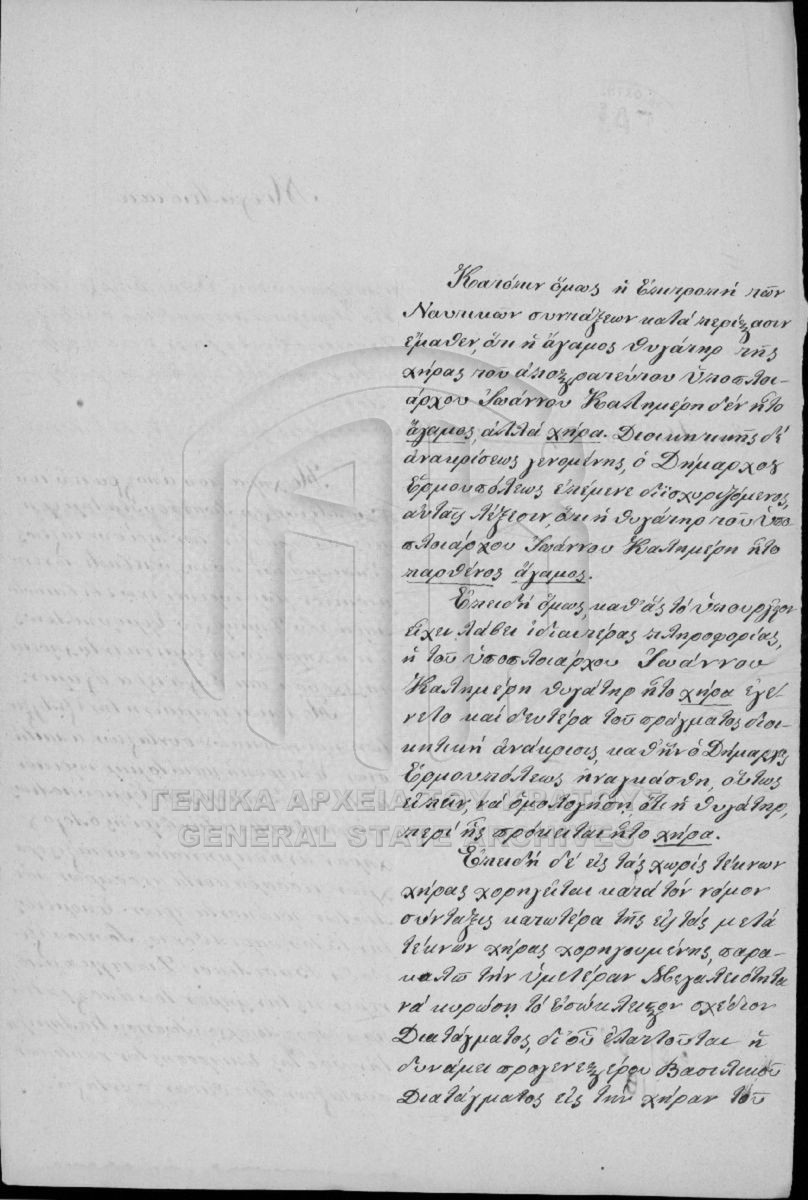 Κατόπιν ὅμως ἡ Ἐπιτροπὴ τῶν
Ναυτικῶν συντάξεων κατὰ περίστασιν
ἔμαθεν, ὅτι ἡ ἄγαμος θυγάτηρ τῆς
χήρας τοῦ ἀποστρατεύτου ὑποπλοι-
άρχου Ἰωάννου Καλημέρη δὲν ἦτο
ἄγαμος, ἀλλὰ χήρα. Διοικητικῆς δὲ
ἀνακρίσεως γενομένης, ὁ Δήμαρχος
Ἑρμουπόλεως ἐπέμενε διϊσχυριζόμενος,
αὐταῖς λέξεσιν, ὅτι ἡ θυγάτηρ τοῦ ὑπο-
πλοιάρχου Ἰωάννου Καλημέρη ἦτο
παρθένος ἄγαμος.
Ἐπειδὴ ὅμως, καθ' ἃς τὸ ὑπουργεῖον
εἶχε λάβει ἰδιαιτέρας πληροφορίας,
ἡ τοῦ ὑποπλοιάρχου Ἰωάννου
Καλημέρη θυγάτηρ ἦτο χήρα ἐγέ-
νετο καὶ δευτέρα τοῦ πράγματος διοι-
κητικὴ ἀνάκρισις, καθ' ἣν ὁ Δήμαρχος
Ἑρμουπόλεως ἠναγκάσθη, οὕτως
εἰπεῖν, νὰ ὁμολογήσῃ, ὅτι ἡ θυγάτηρ,
περὶ ἧς πρόκειται ἦτο χήρα.
Ἐπειδὴ δὲ εἰς τὰς χωρὶς τέκνων
χήρας χορηγεῖται κατὰ τὸν νόμον
σύνταξις κατωτέρα τῆς εἰς τὰς μετὰ
τέκνων χήρας χορηγουμένης, παρα-
καλῶ τὴν ὑμετέραν Μεγαλειότητα
νὰ κυρώσῃ τὸ ἐσώκλειστον σχέδιον
Διατάγματος, δι' οὗ ἐλαττοῦται ἡ
δυνάμει προγενεστέρου Βασιλικοῦ
Διατάγματος εἰς τὴν χήραν τοῦ
ΓΕΝΙΚΑ ΑΡΧΕΙΑ ΤΟΥ ΚΡΑΤΟΥΣ
GENERAL STATE ARCHIVES